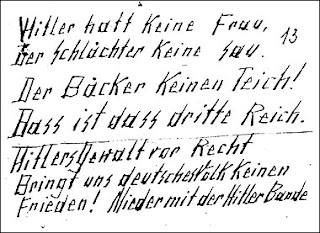 Hitler hatt Keine Frau, 13
Der Schlächter Keine Sau.
Der Bäcker Keinen Teich!
Dass ist dass dritte Reich.
Hitlers Gewalt vor Recht
Bringt uns deutsches Volk Keinen
Frieden! Nieder mit der Hitler Bande